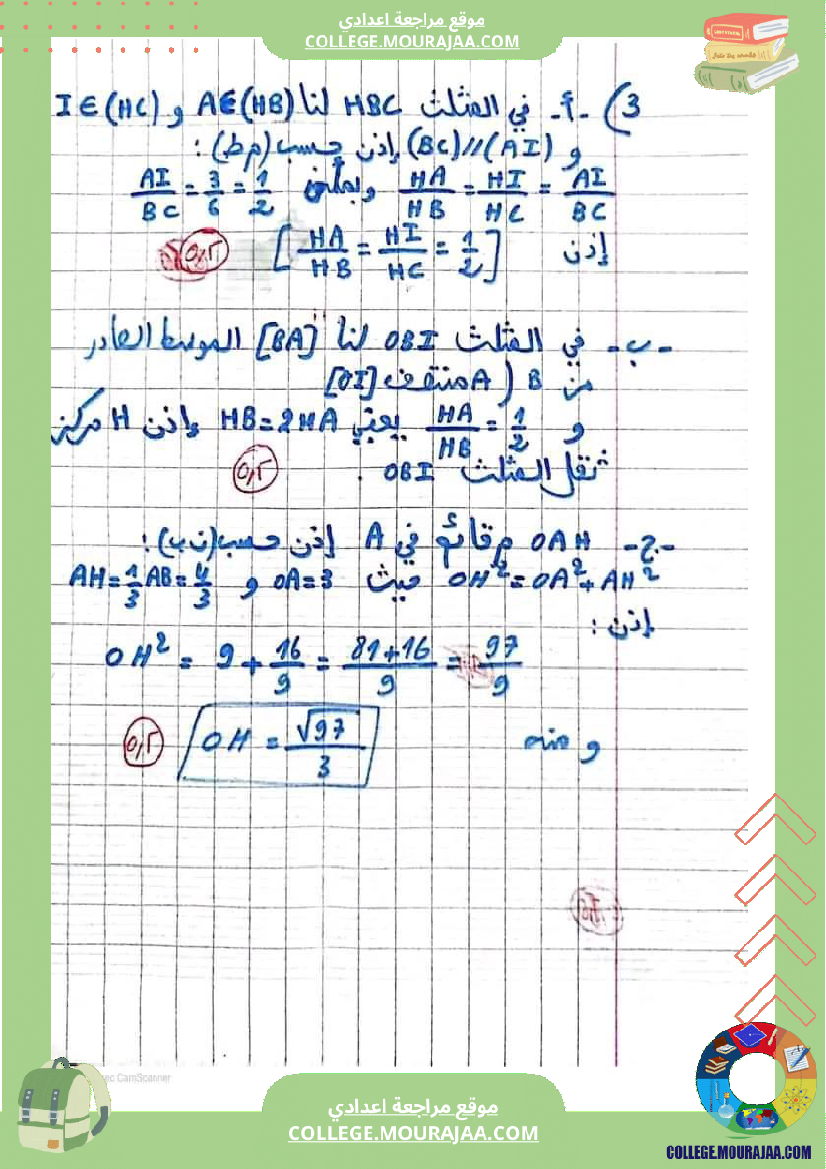 موقع مراجعة اعدادي
COLLEGE.MOURAJAA.COM
3) -أ- في المثلث HBC لنا A∈(HB) و I∈(HC)
و (AI)//(BC) إذن حسب (م ط) :
AI/BC = HI/HC = HA/HB وبما أن AI/BC = 3/6 = 1/2
إذن [HA/HB = HI/HC = 1/2] 0,5
-ب- في المثلث OBI لنا [BA] الموسط الصادر
من B (A منتصف [OI]
و HA/HB = 1/2 يعني HB=2HA وإذن H مركز
ثقل المثلث OBI . 0,5
-ج- OAH م قائم في A إذن حسب (ن ب) :
OH²=OA²+AH² حيث OA=3 و AH=1/3 AB=4/3
إذن :
OH² = 9 + 16/9 = 81+16/9 = 97/9
و منه OH = √97/3 0,5
CamScanner
موقع مراجعة اعدادي
COLLEGE.MOURAJAA.COM
COLLEGE.MOURAJAA.COM